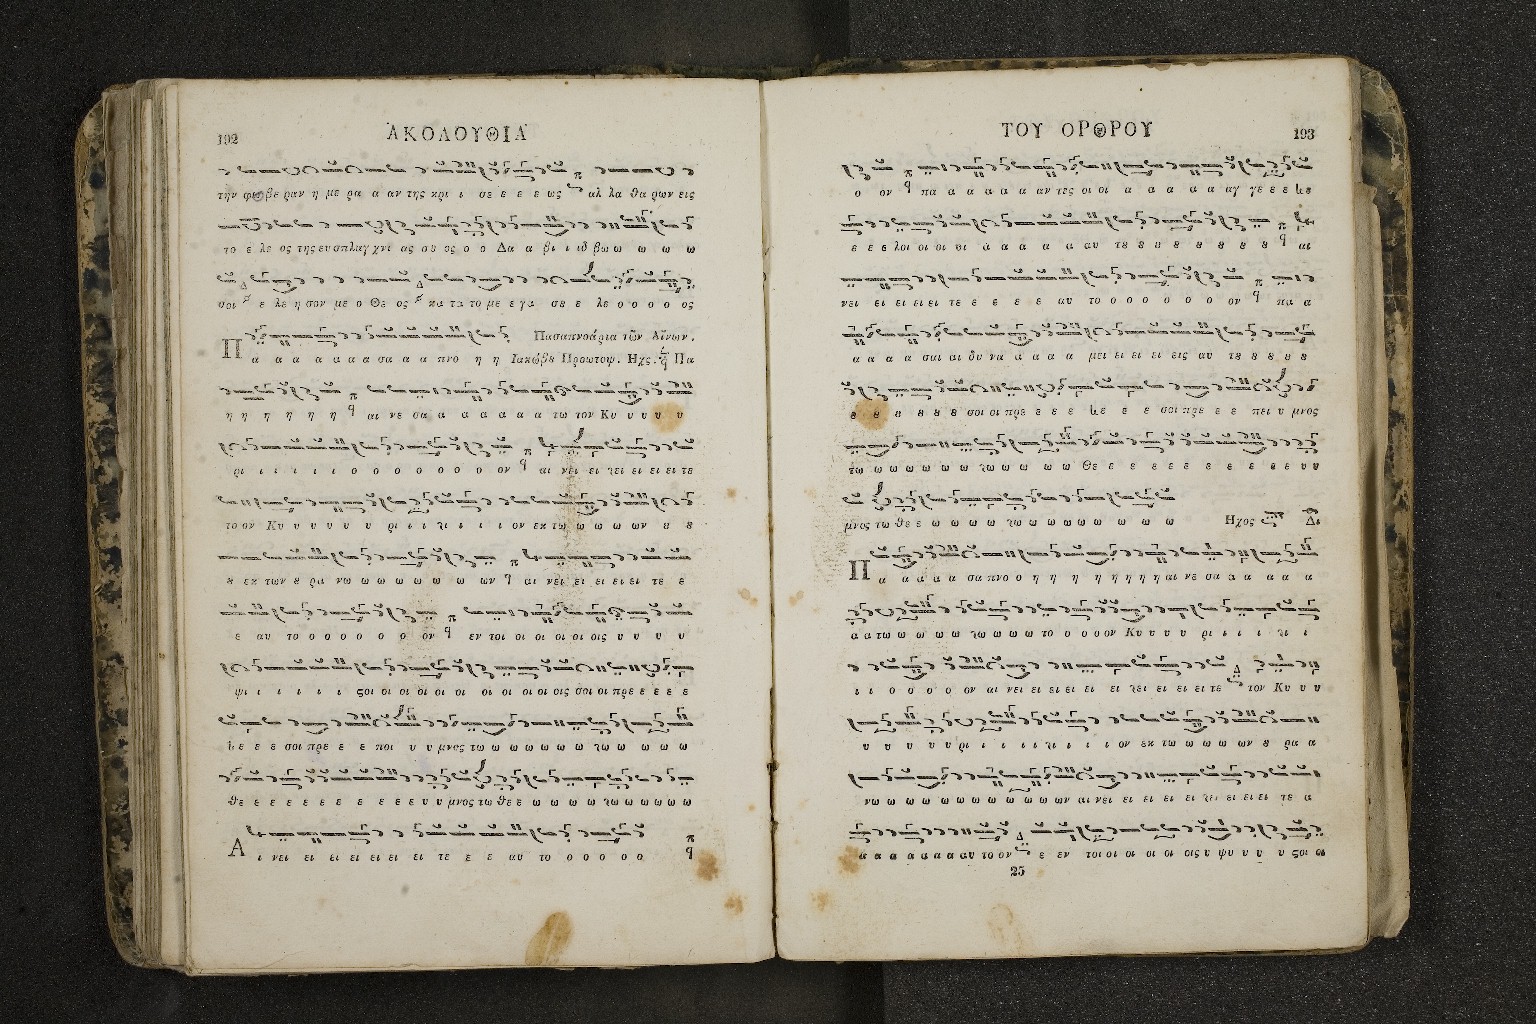 192
ΑΚΟΛΟΥΘΙΑ
την φοβε ραν η με ρα α αν της κρι ι σε ε ε ε ως αλ λα θα ρων εις
το ε λε ος της ευσπλαγ χνι ας σου ος ο ο Δα α βι ι ιδ βοω ω ω ω ω
σοι ε λε η σον με ο Θε ος κα τα το με ε γα σε ε λε ο ο ο ο ος
Πασαπνοάρια τῶν Αἴνων.
Π α α α α α α α σα α α πνο η η Ιακώβȣ Πρωτοψ. Ηχς. Πα
η η η η η η η αι νε σα α α α α α α τω τον Κυ υ υ υ υ
ρι ι ι ι ι ι ο ο ο ο ο ο ο ο ον αι νει ει χει ει ει ει τε
το ον Κυ υ υ υ υ υ υ ρι ι ι χι ι ι ι ον εκ τω ω ω ω ων ȣ ȣ
ȣ εκ των ȣ ρα νω ω ω ω ω ω ω ω ων αι νει ει ει ει ει τε ε
ε αυ το ο ο ο ο ο ο ο ον εν τοι οι οι οι οι οι οις υ υ υ υ
ψι ι ι ι ι ι ςοι οι οι οι οι οι οι οι οι οι οι οις σοι οι πρε ε ε ε ε
χε ε ε ε σοι πρε ε ε ε ποι υ υ μνος τω ω ω ω ω ω ω ω χω ω ω ω ω
θε ε ε ε ε ε ε ε ε ε ε ε υ υ μνος τω θε ε ω ω ω ω χω ω ω ω ω ω
Α ι νει ει ει ει ει ει ει τε ε ε αυ το ο ο ο ο ο
ΤΟΥ ΟΡΘΡΟΥ
193
ο ον πα α α α α α αν τες οι οι α α α α α αγ γε ε ε χε
ε ε ε λοι οι οι οι α α α α α α αυ τȣ ȣ ȣ ȣ ȣ ȣ ȣ ȣ αι
νει ει ει ει ει τε ε ε ε ε αυ το ο ο ο ο ο ο ον πα α
α α α α σαι αι δυ να α α α α μει ει ει ει ει εις αυ τȣ ȣ ȣ ȣ ȣ
ȣ ȣ ȣ ȣ ȣ ȣ σοι οι πρε ε ε ε χε ε ε ε σοι πρε ε ε πει υ μνος
τω ω ω ω ω ω ω χω ω ω ω ω Θε ε ε ε ε ε ε ε ε ε ε υ υ
μνος τω θε ε ω ω ω ω χω ω ω ω ω ω ω ω Ηχος Δι
Π α α α α α σα πνο ο η η η η η η η αι νε σα α α α α α
α α τω ω ω ω ω χω ω ω ω το ο ο ο ον Κυ υ υ υ ρι ι ι ι χι ι
ι ι ο ο ο ο ον αι νει ει ει ει ει ει χει ει ει ει ει τε τον Κυ υ υ
υ υ υ υ υ ρι ι ι ι ι χι ι ι ι ον εκ τω ω ω ω ων ȣ ρα α
νω ω ω ω ω ω ω ω ω ω ω ων αι νει ει ει ει ει χει ει ει ει τε α
α α α α α α α αυ το ον ε εν τοι οι οι οι οι οι οις υ ψυ υ υ υ ςοι οι
25